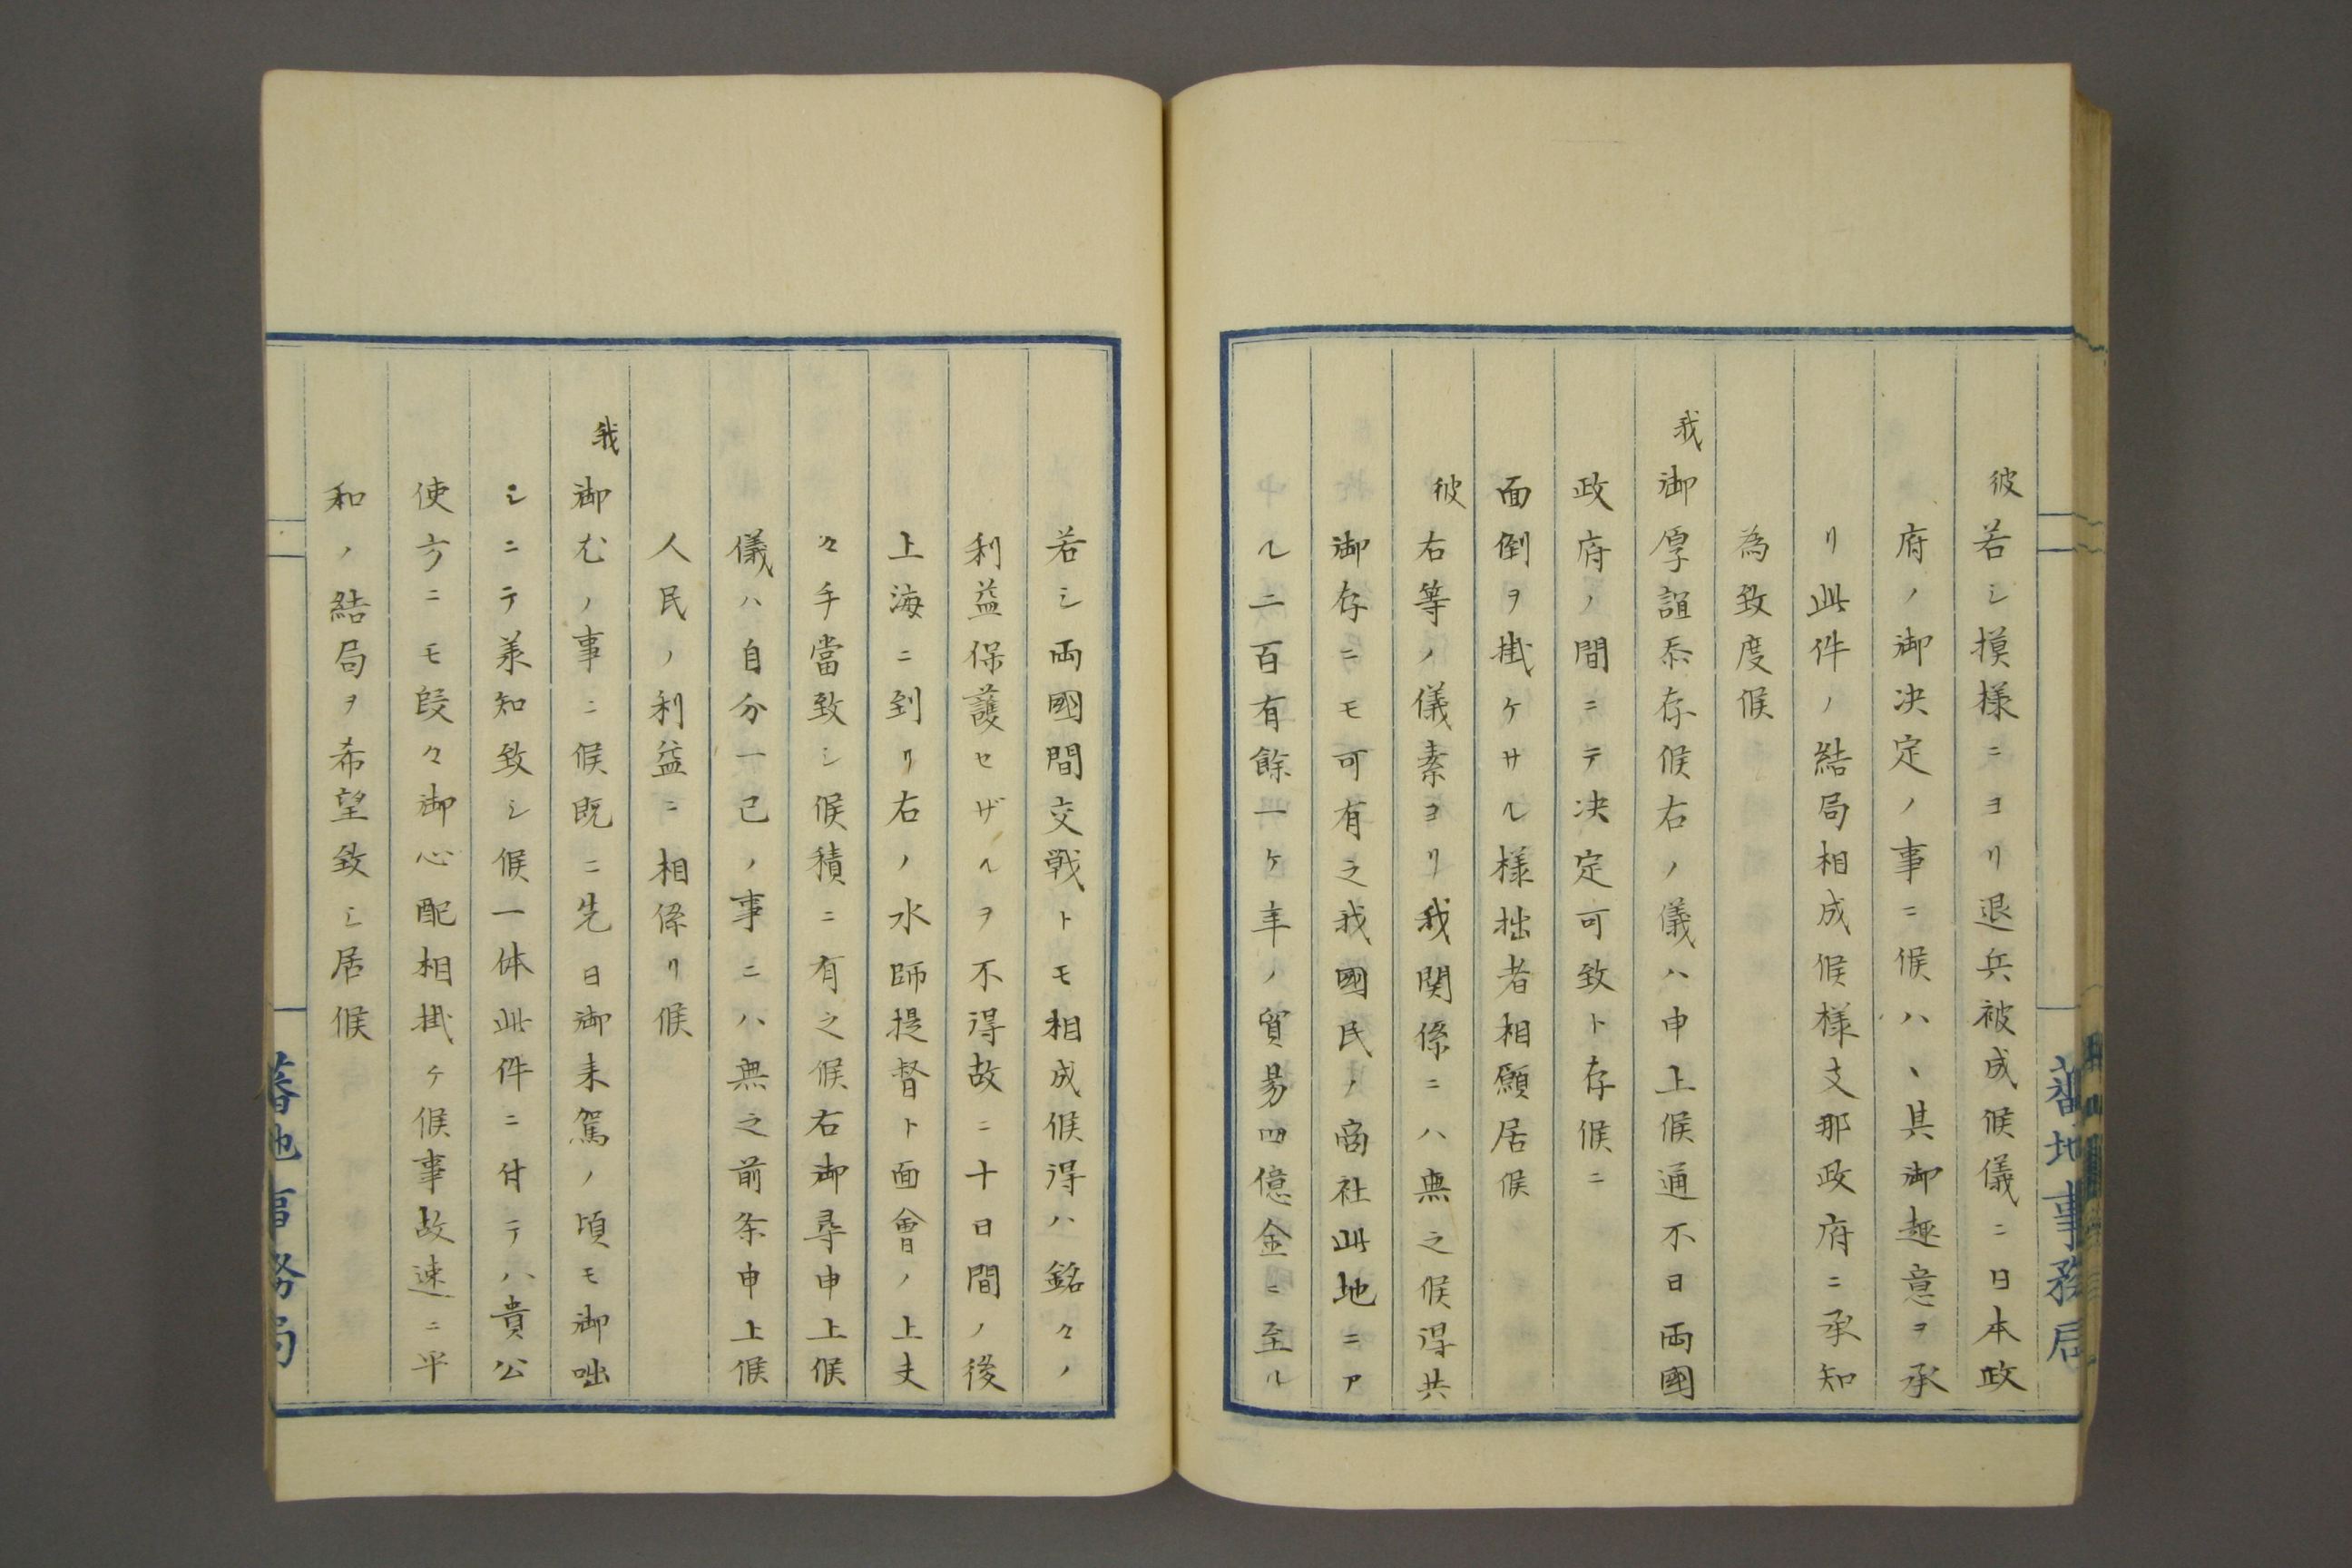 彼若シ摸様ニヨリ退兵被成候儀ニ日本政
府ノ御决定ノ事ニ候ハヽ其御趣意ヲ承
リ此件ノ結局相成候様支那政府ニ承知
為致度候
我御厚誼忝存候右ノ儀ハ申上候通不日両國
政府ノ間ニテ决定可致ト存候ニ
面倒ヲ掛ケサル様拙者相願居候
彼右等ノ儀素ヨリ我関係ニハ無之候得共
御存ニモ可有之我國民ノ商社此地ニア
ル二百有餘一ケ年ノ貿易四億金ニ至ル
蕃地事務局
若シ両國間交戦トモ相成候得ハ銘々ノ
利益保護セザルヲ不得故ニ十日間ノ後
上海ニ到リ右ノ水師提督ト面會ノ上夫
々手當致シ候積ニ有之候右御尋申上候
儀ハ自分一己ノ事ニハ無之前条申上候
人民ノ利益ニ相係リ候
我御尤ノ事ニ候既ニ先日御来駕ノ頃モ御咄
シニテ羕知致シ候一体此件ニ付テハ貴公
使方ニモ段々御心配相掛ケ候事故速ニ平
和ノ結局ヲ希望致シ居候
蕃地事務局